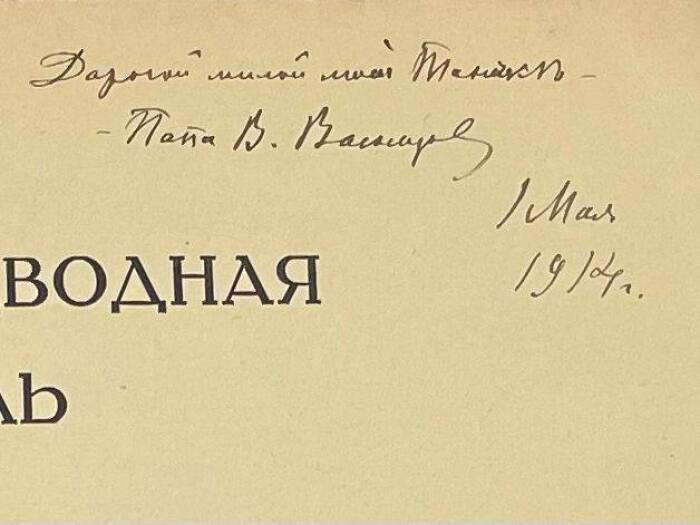 Дорогой милой моей Танѣ
– Папа В.
1 Мая
ВОДНАЯ
1914 г.
ЛЬ